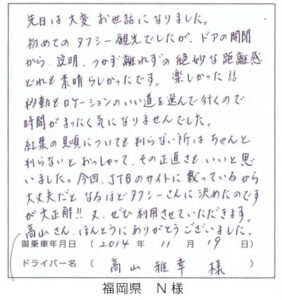 先日は大変お世話になりました。
初めてのタクシー観光でしたが、ドアの開閉
から、説明、つかず離れずの絶妙な距離感
どれも素晴らしかったです。楽しかった!!
移動もロケーションのいい道を選んで行くので
時間がまったく気になりませんでした。
紅葉の見頃についても判らない所はちゃんと
判らないとおっしゃって、その正直さもいいと思
いました。今回、JTBのサイトに載っているから
大丈夫だとなるほどタクシーさんに決めたのです
が大正解!!又、ぜひ利用させていただきます。
高山さん、ほんとうにありがとうございました。
御乗車年月日（2014年11月19日）
ドライバー名（高山雅幸様）
福岡県 N様